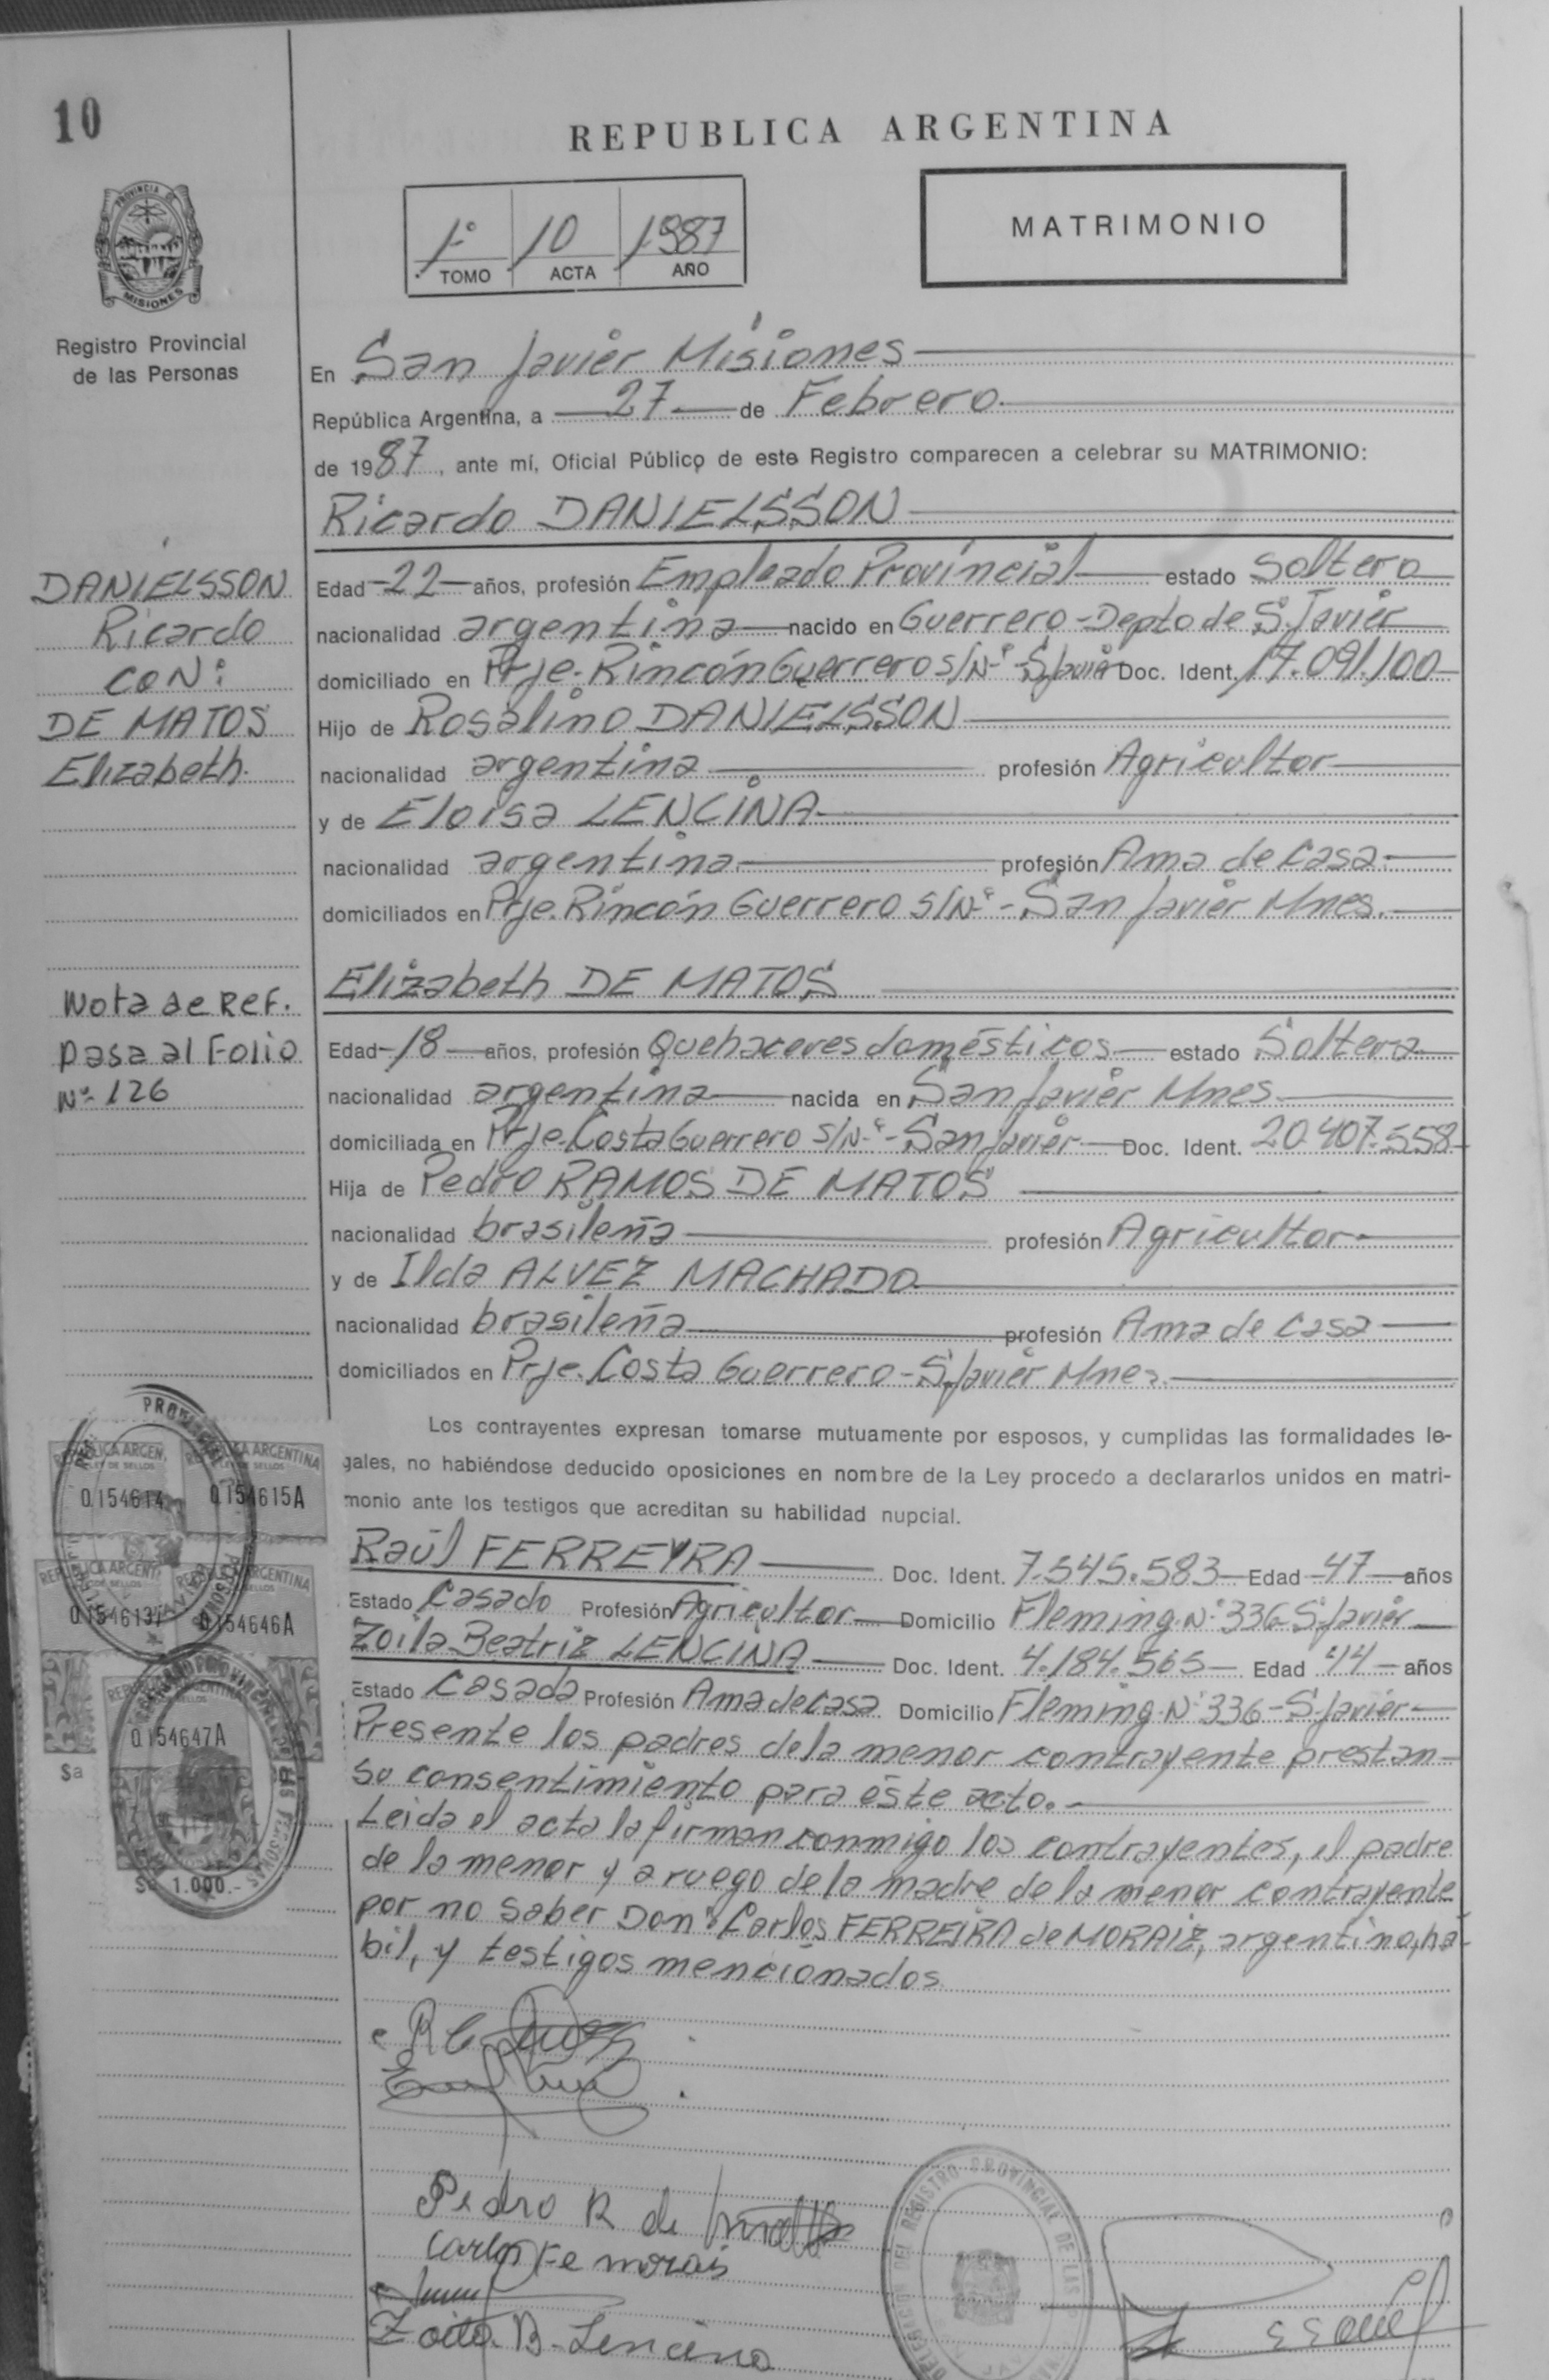 10
REPUBLICA ARGENTINA
PROVINCIA DE
MISIONES
Registro Provincial
de las Personas
1° 10 1987
TOMO ACTA AÑO
MATRIMONIO
En San Javier Misiones
República Argentina, a 27 de Febrero
de 1987, ante mí, Oficial Público de este Registro comparecen a celebrar su MATRIMONIO:
Ricardo DANIELSSON
DANIELSSON
Ricardo
CON:
DE MATOS
Elizabeth.
Edad 22 años, profesión Empleado Provincial estado soltero
nacionalidad argentina nacido en Guerrero - Depto de S. Javier
domiciliado en Prje. Rincón Guerrero S/N° - S/Javier Doc. Ident. 17.091.100
Hijo de Rosalino DANIELSSON
nacionalidad argentina profesión Agricultor
y de Eloisa LENCINA
nacionalidad argentina profesión Ama de casa.
domiciliados en Prje. Rincón Guerrero S/N° - San Javier Mnes.
Elizabeth DE MATOS
Nota de Ref.
pasa al Folio
N° 126
Edad 18 años, profesión Quehaceres domésticos estado Soltera
nacionalidad argentina nacida en San Javier Mnes
domiciliada en Prje. Costa Guerrero S/N° - San Javier Doc. Ident. 20.407.558
Hija de Pedro RAMOS DE MATOS
nacionalidad brasileña profesión Agricultor
y de Ilda ALVEZ MACHADO
nacionalidad brasileña profesión Ama de casa
domiciliados en Prje. Costa Guerrero - S. Javier Mnes.
Los contrayentes expresan tomarse mutuamente por esposos, y cumplidas las formalidades le-
gales, no habiéndose deducido oposiciones en nombre de la Ley procedo a declararlos unidos en matri-
monio ante los testigos que acreditan su habilidad nupcial.
Raúl FERREYRA Doc. Ident. 7.545.583 Edad 47 años
Estado Casado Profesión Agricultor Domicilio Fleming N° 336 - S. Javier
Zoila Beatriz LENCINA Doc. Ident. 4.184.565 Edad 44 años
Estado Casada Profesión Ama de casa Domicilio Fleming N° 336 - S. Javier
Presente los padres de la menor contrayente prestan
su consentimiento para éste acto.
Leida el acta la firman conmigo los contrayentes, el padre
de la menor y a ruego de la madre de la menor contrayente
por no saber Don: Carlos FERREIRA de MORAIZ, argentino, há-
bil, y testigos mencionados
REPUBLICA ARGENTINA
0154614
0154615A
0154646A
0154647A
1.000.-
Pedro R de
Carlos Fe morais
Zoila B. Lencina
DELEGACION DEL REGISTRO PROVINCIAL DE LAS